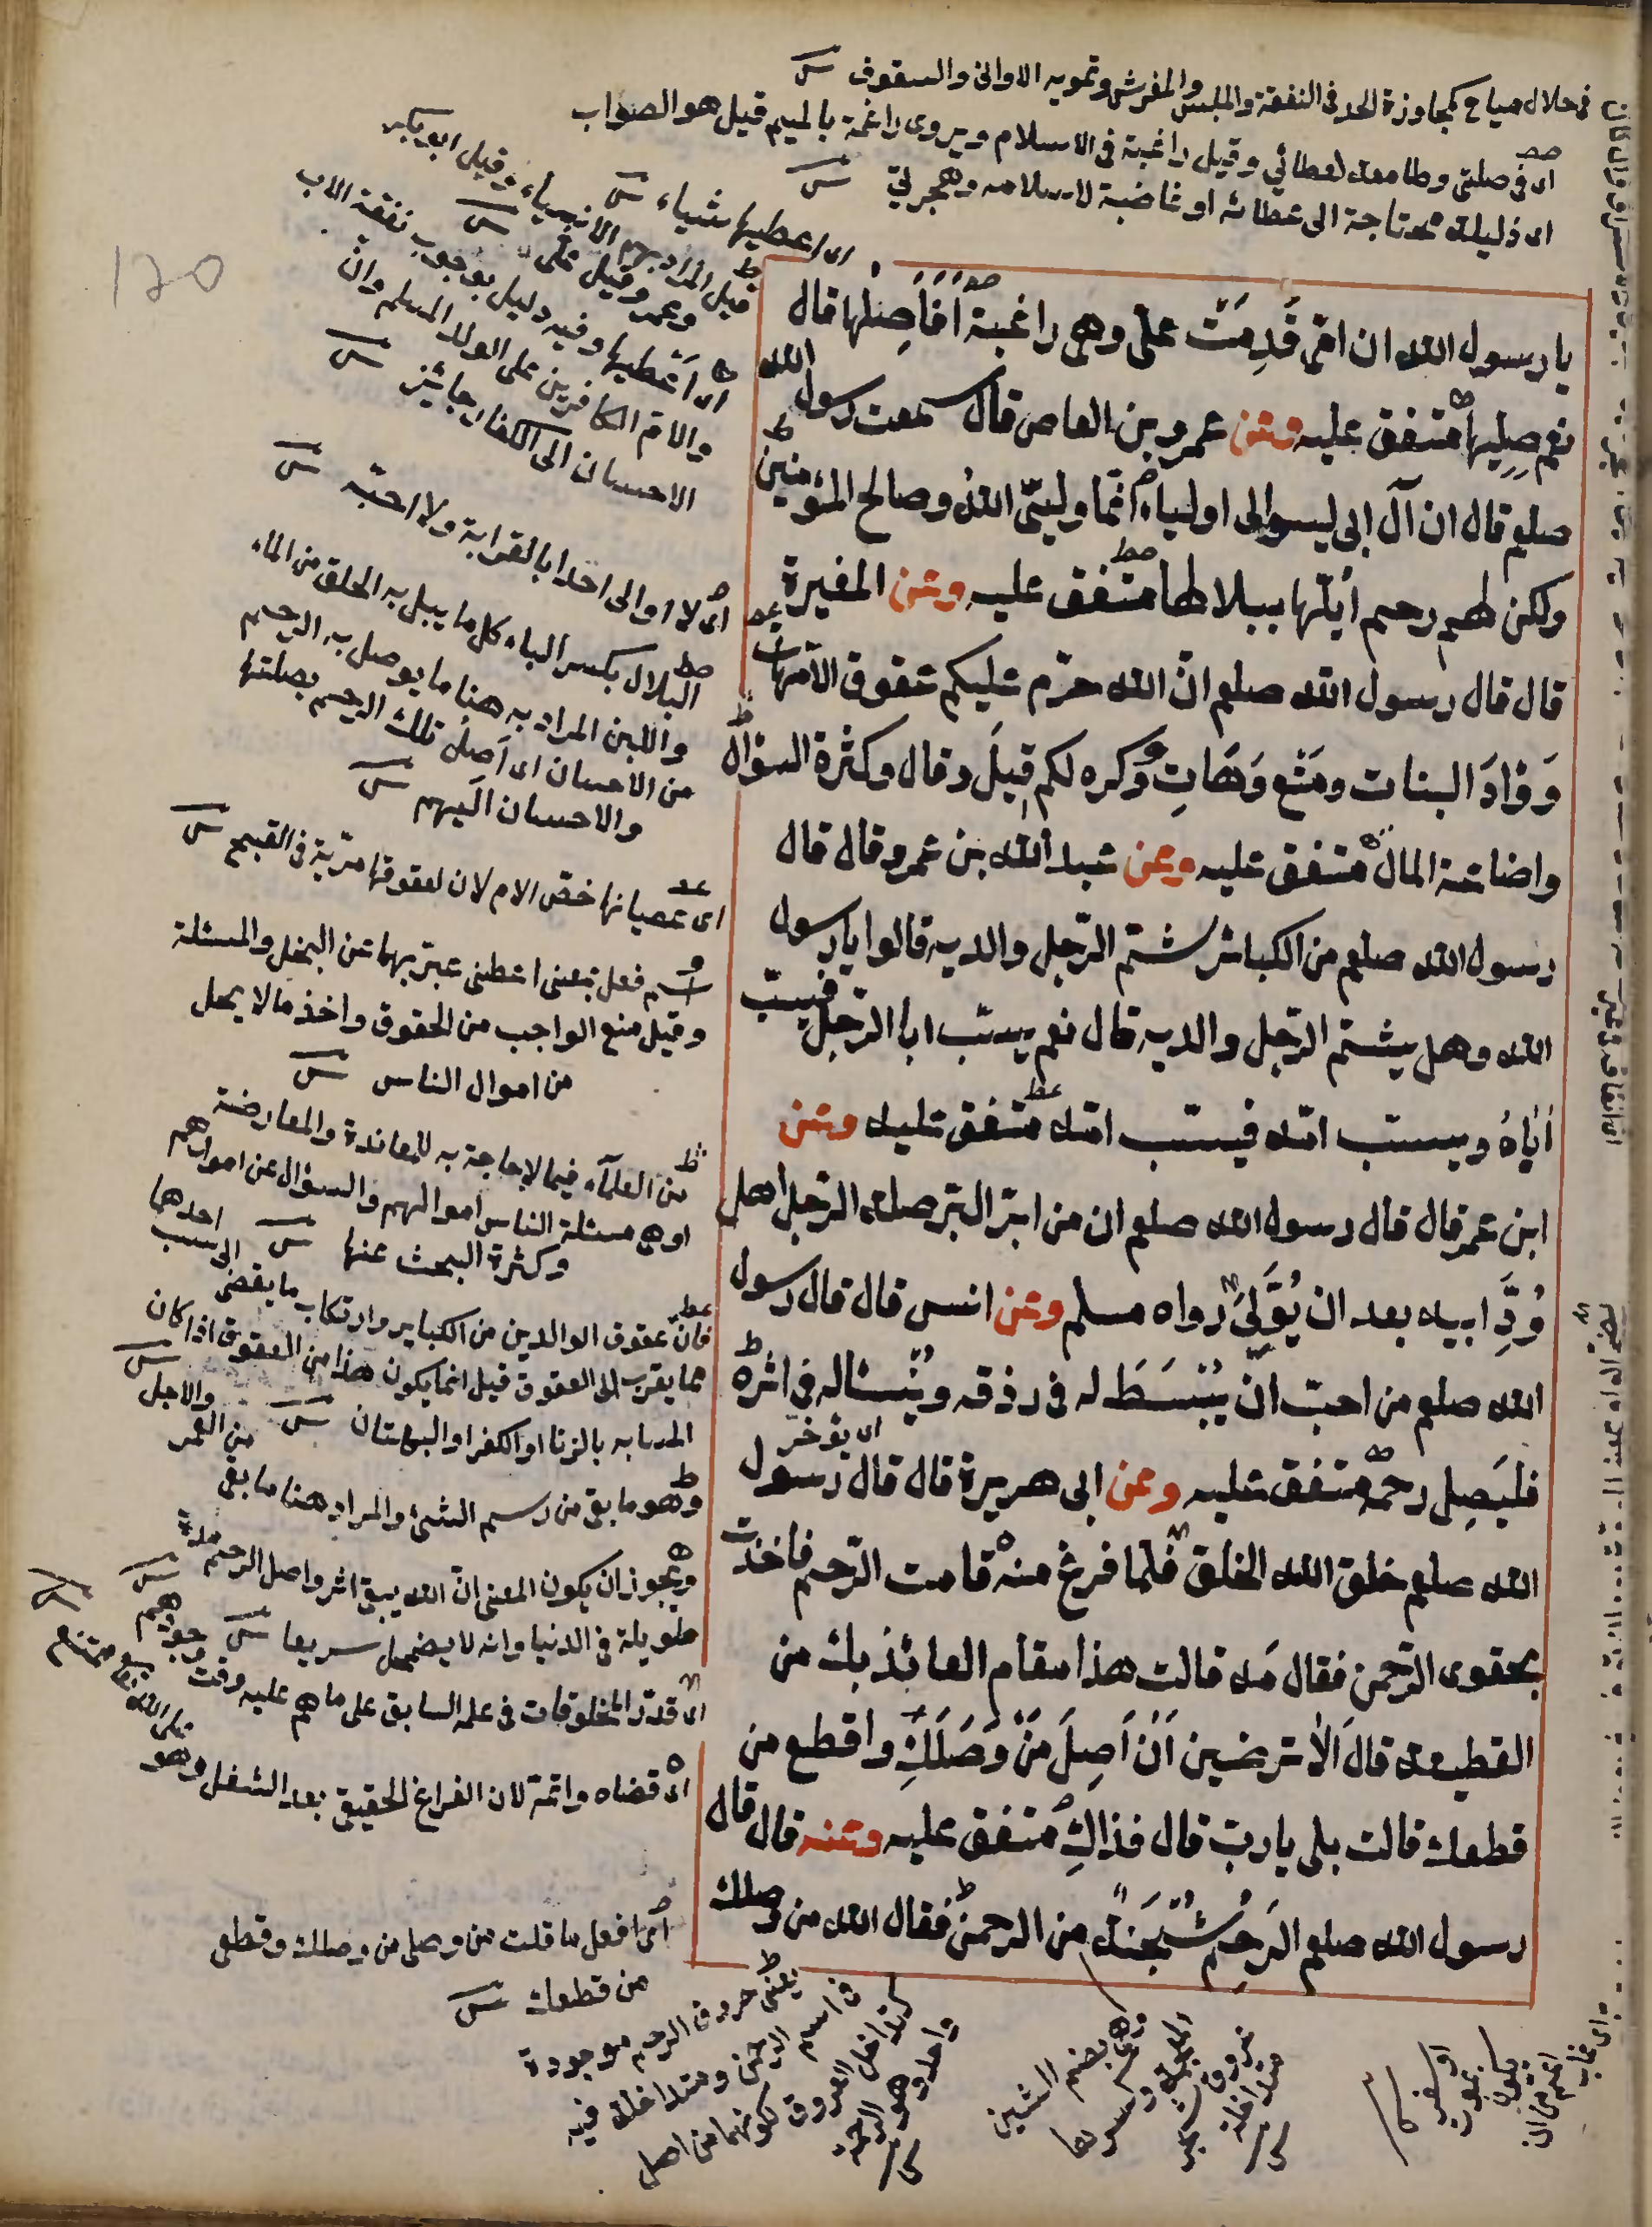 فى حلال مباح كمجاوزة الحد فى النفقة والملبس والمفرش وتمويه الاوانى والسقوف
اى فى صلتى وطامعة لعطائي وقيل راغبة فى الاسلام ويروى راغمة بالميم قيل هو الصواب
اى ذليلة محتاجة الى عطائه او غاضبة لاسلامه وهجرتى
اى اعطيها شياء
يا رسول الله ان امّى قَدِمَتْ علىّ وهى راغبة اَفَاَصِلُها قال
نعم صِلِيها متفق عليه وعن عمرو بن العاص قال سمعت رسول الله
صلعم قال ان آلَ ابى ليسوا لى اولياء انّما وليىّ اللهُ وصالح المؤمنين
ولكن لهم رحم اَبُلّها ببلالها متفق عليه وعن المغيرة
قال قال رسول الله صلعم انّ الله حرّم عليكم عقوق الامّهات
وَوَأدَ البنات ومَنْع وَهَاتِ وكره لكم قيلَ وقال وكثرة السؤال
واضاعة المال متفق عليه وعن عبد الله بن عمرو قال قال
رسول الله صلعم من الكبائر شتم الرّجل والديه قالوا يا رسول
الله وهل يشتم الرّجل والديه قال نعم يسبّ ابا الرّجل فيسبّ
اَباهُ ويسبّ امّه فيسبّ امّه متفق عليه وعن
ابن عمر قال قال رسول الله صلعم ان من ابرّ البرّ صلة الرّجل اهل
وُدِّ ابيه بعد ان يُوَلِّىَ رواه مسلم وعن انس قال قال رسول
الله صلعم من احبّ انْ يُبْسَطَ له فى رزقه ويُنْسَاله فى اثره
اى يؤخّر
فليَصِل رحمه متفق عليه وعن ابى هريرة قال قال رسول
الله صلعم خلق الله الخلق فلما فرغ منه قامت الرّحم فاخذت
بحقوى الرّحمن فقال مَه قالت هذا مقام العائذ بك من
القطيعة قال اَلا ترضين اَنْ اَصِلَ مَنْ وَصَلَكِ واقطع من
قطعك قالت بلى يا ربّ قال فذاكِ متفق عليه وعنه قال قال
رسول الله صلعم الرَحِمُ شُجْنَةٌ من الرحمن فقال الله من وصلك
قيل المراد بهم الانبياء وقيل ابو بكر
وعمر وقيل على
اى اَعْطيها وفيه دليل بوجوب نفقة الاب
والامّ الكافرين على الولد المسلم وانّ
الاحسان الى الكفار جائز
اى لا اوالى احدا بالقرابة ولا احبّه
البلال بكسر الباء كل ما يبل به الحلق من الماء
واللبن المراد به هنا ما يوصل به الرحم
من الاحسان اى اَصِلُ تلك الرحم بصلتها
والاحسان اليهم
اى عصيانها خصّ الام لان لعقوقها مزيّة فى القبيح
اسم فعل بمعنى اعطنى عبّر بهما عن البخل والمسئلة
وقيل منع الواجب من الحقوق واخذ ما لا يحل
من اموال الناس
من العلمآء فيما لا حاجة به للمعاندة والمعارضة
او هى مسئلة الناس اموالهم والسؤال عن اموالهم
وكثرة البحث عنها
فانّ عقوق الوالدين من الكبائر وارتكاب ما يفضى
مما يقرب الى العقوق قيل انما يكون هذا من العقوق اذا كان
السباب بالزنا او الكفر او البهتان
وهو ما بقى من رسم الشئ والمراد هنا ما بقى
من العمر والاجل
ويجوز ان يكون المعنى انّ الله يبقى اثر واصل الرحم مدة
طويلة فى الدنيا وانه لا يضمحل سريعا
اى قدّر المخلوقات فى علمه السابق على ما هم عليه وقت وجودهم
اى قضاه واتمّه لان الفراغ الحقيقى بعد الشغل وهو
على الله تعالى ممتنع
اى افعل ما قلت من وصلى من وصلك وقطعى
من قطعك
يعنى حروف الرحم موجودة
فى اسم الرحمن ومتداخلة فيه
كتداخل العروق لكونهما من اصل
واحد وهو الرحمة
وهى بضم الشين
المعجمة وكسرها
عروق شجر
متداخلة